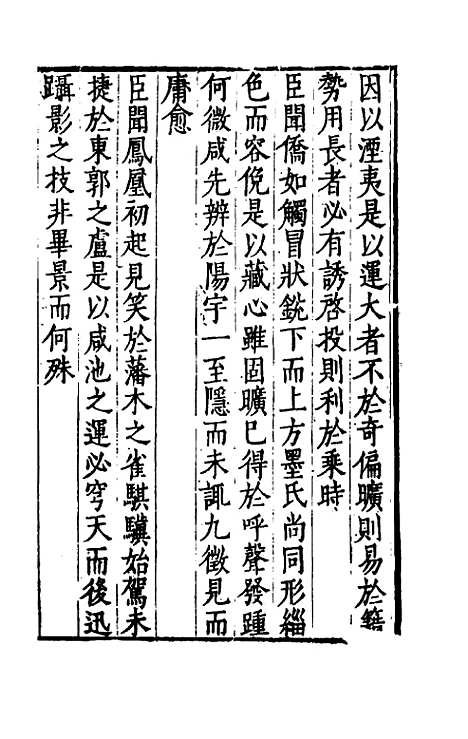 因以湮夷是以運大者不於奇偏曠則易於籍
勢用長者必有誘啓投則利於乘時
臣聞僑如觸冒狀銳下而上方墨氏尚同形緇
色而容俛是以藏心雖固曠已得於呼聲發踵
何微咸先辨於陽宇一至隱而未諷九徵見而
庸愈
臣聞鳳凰初起見笑於藩木之雀騏驥始駕未
捷於東郭之盧是以咸池之運必穹天而後迅
躡影之技非畢景而何殊